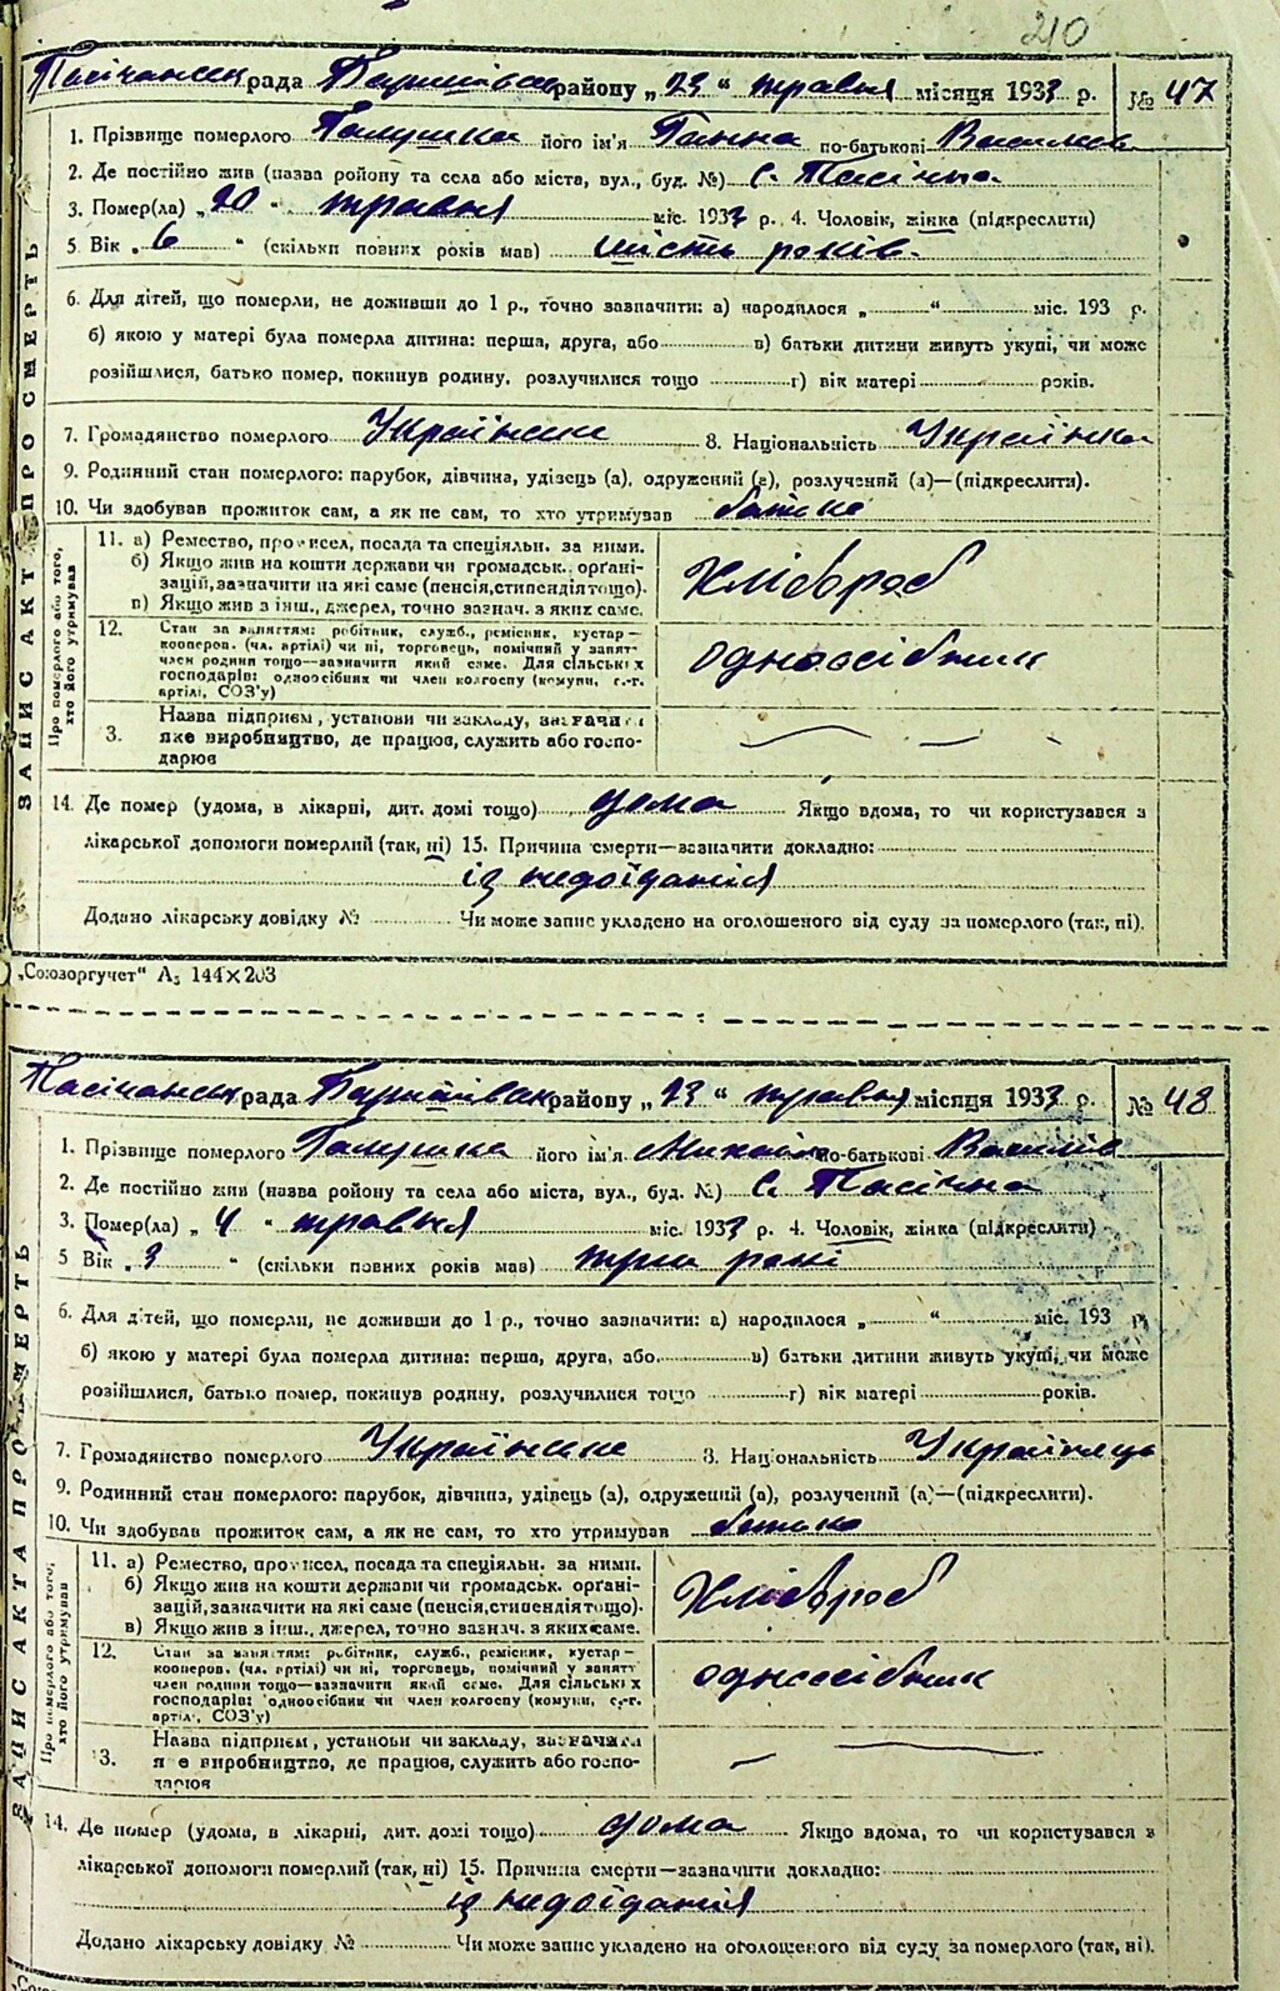 210
Пасічанськ рада Барштівськ району „23“ травня місяця 1933 р. № 47
1. Прізвище померлого Галушка його ім'я Ганна по-батькові Васильов
2. Де постійно жив (назва району та села або міста, вул., буд. №) с. Пасічна
3. Помер(ла) „20“ травня міс. 1933 р. 4. Чоловік, жінка (підкреслити)
5. Вік „6“ (скільки повних років мав) шість років.
6. Для дітей, що померли, не доживши до 1 р., точно зазначити: а) народилося „ “ міс. 193 р.
б) якою у матері була померла дитина: перша, друга, або в) батьки дитини живуть укупі, чи може
розійшлися, батько помер, покинув родину, розлучилися тощо г) вік матері років.
7. Громадянство померлого Українське 8. Національність Українка
9. Родинний стан померлого: парубок, дівчина, удівець (а), одружений (а), розлучений (а)—(підкреслити).
10. Чи здобував прожиток сам, а як не сам, то хто утримував батько
ЗАПИС АКТ ПРО СМЕРТЬ
Про померлого або того, хто його утримував
11. а) Ремество, промисел, посада та спеціяльн. за ними.
б) Якщо жив на кошти держави чи громадськ. органі-
зацій, зазначити на які саме (пенсія, стипендія тощо).
в) Якщо жив з інш., джерел, точно зазнач. з яких саме.
хлібороб
12. Стан за заняттям: робітник, служб., ремісник, кустар—
кооперов. (чл. артілі) чи ні, торговець, помічний у занят.
член родини тощо—зазначити який саме. Для сільських
господарів: одноосібник чи член колгоспу (комуни, с.-г.
артілі, СОЗ'у)
одноосібник
3. Назва підприєм., установи чи закладу, зазначити
яке виробництво, де працює, служить або госпо-
дарює
14. Де помер (удома, в лікарні, дит. домі тощо) дома Якщо вдома, то чи користувався з
лікарської допомоги померлий (так, ні) 15. Причина смерти—зазначити докладно:
із недоїдання
Додано лікарську довідку № Чи може запис укладено на оголошеного від суду за померлого (так, ні).
„Союзоргучет“ А₅ 144×203
Пасічанськ рада Барштівськ району „23“ травня місяця 1933 р. № 48
1. Прізвище померлого Галушка його ім'я Микола по-батькові Василів
2. Де постійно жив (назва району та села або міста, вул., буд. №) с. Пасічна
3. Помер(ла) „4“ травня міс. 1933 р. 4. Чоловік, жінка (підкреслити)
5 Вік „3“ (скільки повних років мав) три роки
6. Для дітей, що померли, не доживши до 1 р., точно зазначити: а) народилося „ “ міс. 193 р.
б) якою у матері була померла дитина: перша, друга, або в) батьки дитини живуть укупі, чи може
розійшлися, батько помер, покинув родину, розлучилися тощо г) вік матері років.
7. Громадянство померлого Українське 8. Національність Українець
9. Родинний стан померлого: парубок, дівчина, удівець (а), одружений (а), розлучений (а)—(підкреслити).
10. Чи здобував прожиток сам, а як не сам, то хто утримував батько
ЗАПИС АКТА ПРО СМЕРТЬ
Про померлого або того, хто його утримував
11. а) Ремество, промисел, посада та спеціяльн. за ними.
б) Якщо жив на кошти держави чи громадськ. органі-
зацій, зазначити на які саме (пенсія, стипендія тощо).
в) Якщо жив з інш., джерел, точно зазнач. з яких саме.
хлібороб
12. Стан за заняттям: робітник, служб., ремісник, кустар—
кооперов. (чл. артілі) чи ні, торговець, помічний у занят.
член родини тощо—зазначити який саме. Для сільських
господарів: одноосібник чи член колгоспу (комуни, с.-г.
артілі, СОЗ'у)
одноосібник
3. Назва підприєм., установи чи закладу, зазначити
яке виробництво, де працює, служить або госпо-
дарює
14. Де помер (удома, в лікарні, дит. домі тощо) дома Якщо вдома, то чи користувався з
лікарської допомоги померлий (так, ні) 15. Причина смерти—зазначити докладно:
із недоїдання
Додано лікарську довідку № Чи може запис укладено на оголошеного від суду за померлого (так, ні).